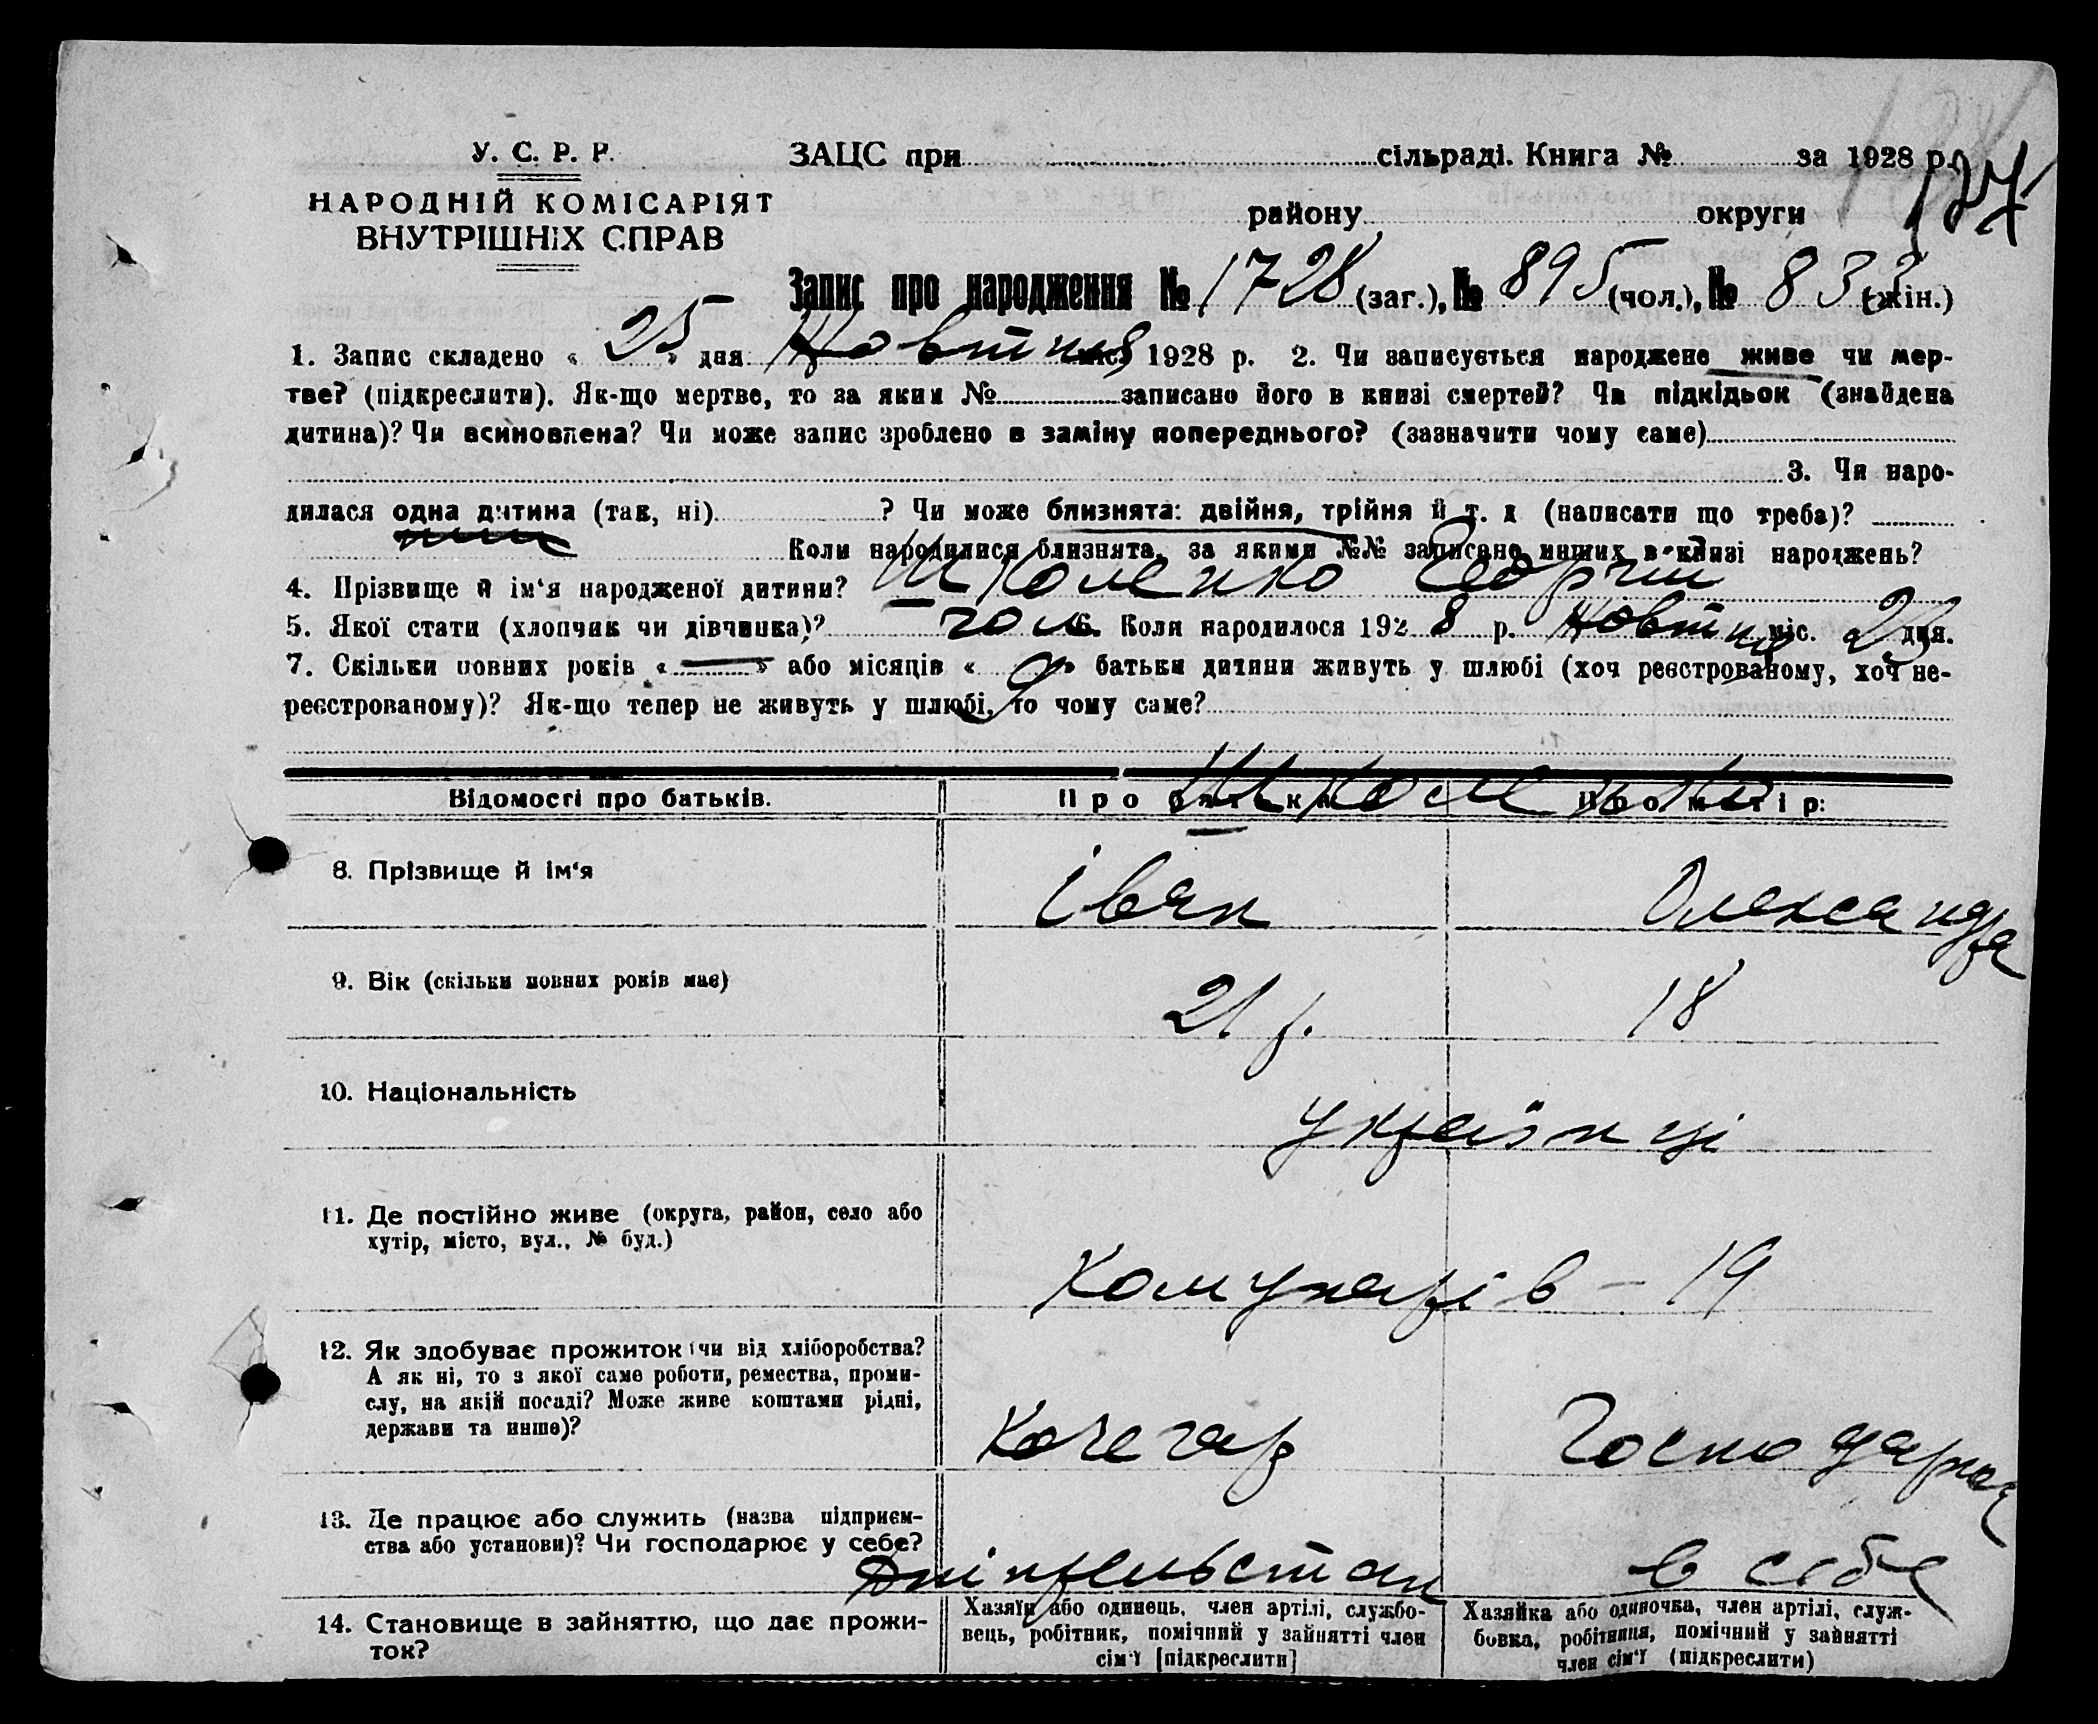 127
У. С. Р. Р.
ЗАЦС при сільраді. Книга № за 1928 р.
НАРОДНІЙ КОМІСАРІЯТ
ВНУТРІШНІХ СПРАВ
району округи
Запис про народження № 1728 (заг.), № 895 (чол.), № 833 (жін.)
1. Запис складено « 25 » дня Жовтня міс. 1928 р. 2. Чи записується народжене живе чи мер-
тве? (підкреслити). Як-що мертве, то за яким № записано його в книзі смертей? Чи підкідьок (знайдена
дитина)? Чи всиновлена? Чи може запис зроблено в заміну попереднього? (зазначити чому саме)
3. Чи наро-
дилася одна дитина (так, ні) ? Чи може близнята: двійня, трійня й т. д (написати що треба)?
Коли народилися близнята, за якими №№ записано инших в книзі народжень?
4. Прізвище й ім‘я народженої дитини? Школенко Георгий
5. Якої стати (хлопчик чи дівчинка)? чол. 6. Коли народилося 192 8 р. Жовтня міс. дня.
7. Скільки повних років « — » або місяців « 9 » батьки дитини живуть у шлюбі (хоч реєстрованому, хоч не-
реєстрованому)? Як-що тепер не живуть у шлюбі, то чому саме?
Відомості про батьків. Про батька: Про матір:
Школенко
8. Прізвище й ім‘я Іван Олександра
9. Вік (скільки повних років має) 21 р. 18
10. Національність українці
11. Де постійно живе (округа, район, село або
хутір, місто, вул., № буд.)
Комунарів - 19
12. Як здобуває прожиток (чи від хліборобства?
А як ні, то з якої саме роботи, ремества, проми-
слу, на якій посаді? Може живе коштами рідні,
держави та инше)?
Кочегар Господарка
13. Де працює або служить (назва підприєм-
ства або установи)? Чи господарює у себе?
Дніпрельстан в себе
14. Становище в зайняттю, що дає прожи-
ток?
Хазяїн або одинець, член артілі, службо-
вець, робітник, помічний у зайнятті член
сім‘ї [підкреслити]
Хазяйка або одиночка, член артілі, служ-
бовка, робітниця, помічний у зайнятті
член сім‘ї (підкреслити)